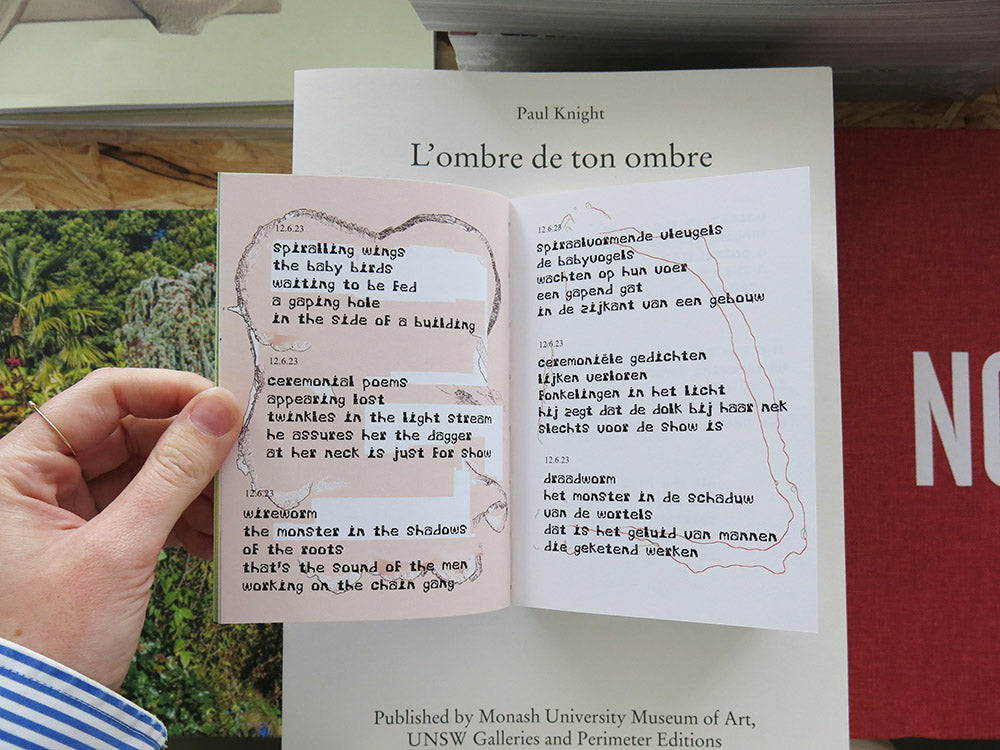 Paul Knight
L'ombre de ton ombre
12.6.23
spiralling wings
the baby birds
waiting to be fed
a gaping hole
in the side of a building
12.6.23
ceremonial poems
appearing lost
twinkles in the light stream
he assures her the dagger
at her neck is just for show
12.6.23
wireworm
the monster in the shadows
of the roots
that's the sound of the men
working on the chain gang
12.6.23
spiraalvormende vleugels
de babyvogels
wachten op hun voer
een gapend gat
in de zijkant van een gebouw
12.6.23
ceremoniële gedichten
lijken verloren
fonkelingen in het licht
hij zegt dat de dolk bij haar nek
slechts voor de show is
12.6.23
draadworm
het monster in de schaduw
van de wortels
dat is het geluid van mannen
die geketend werken
NO
Published by Monash University Museum of Art,
UNSW Galleries and Perimeter Editions